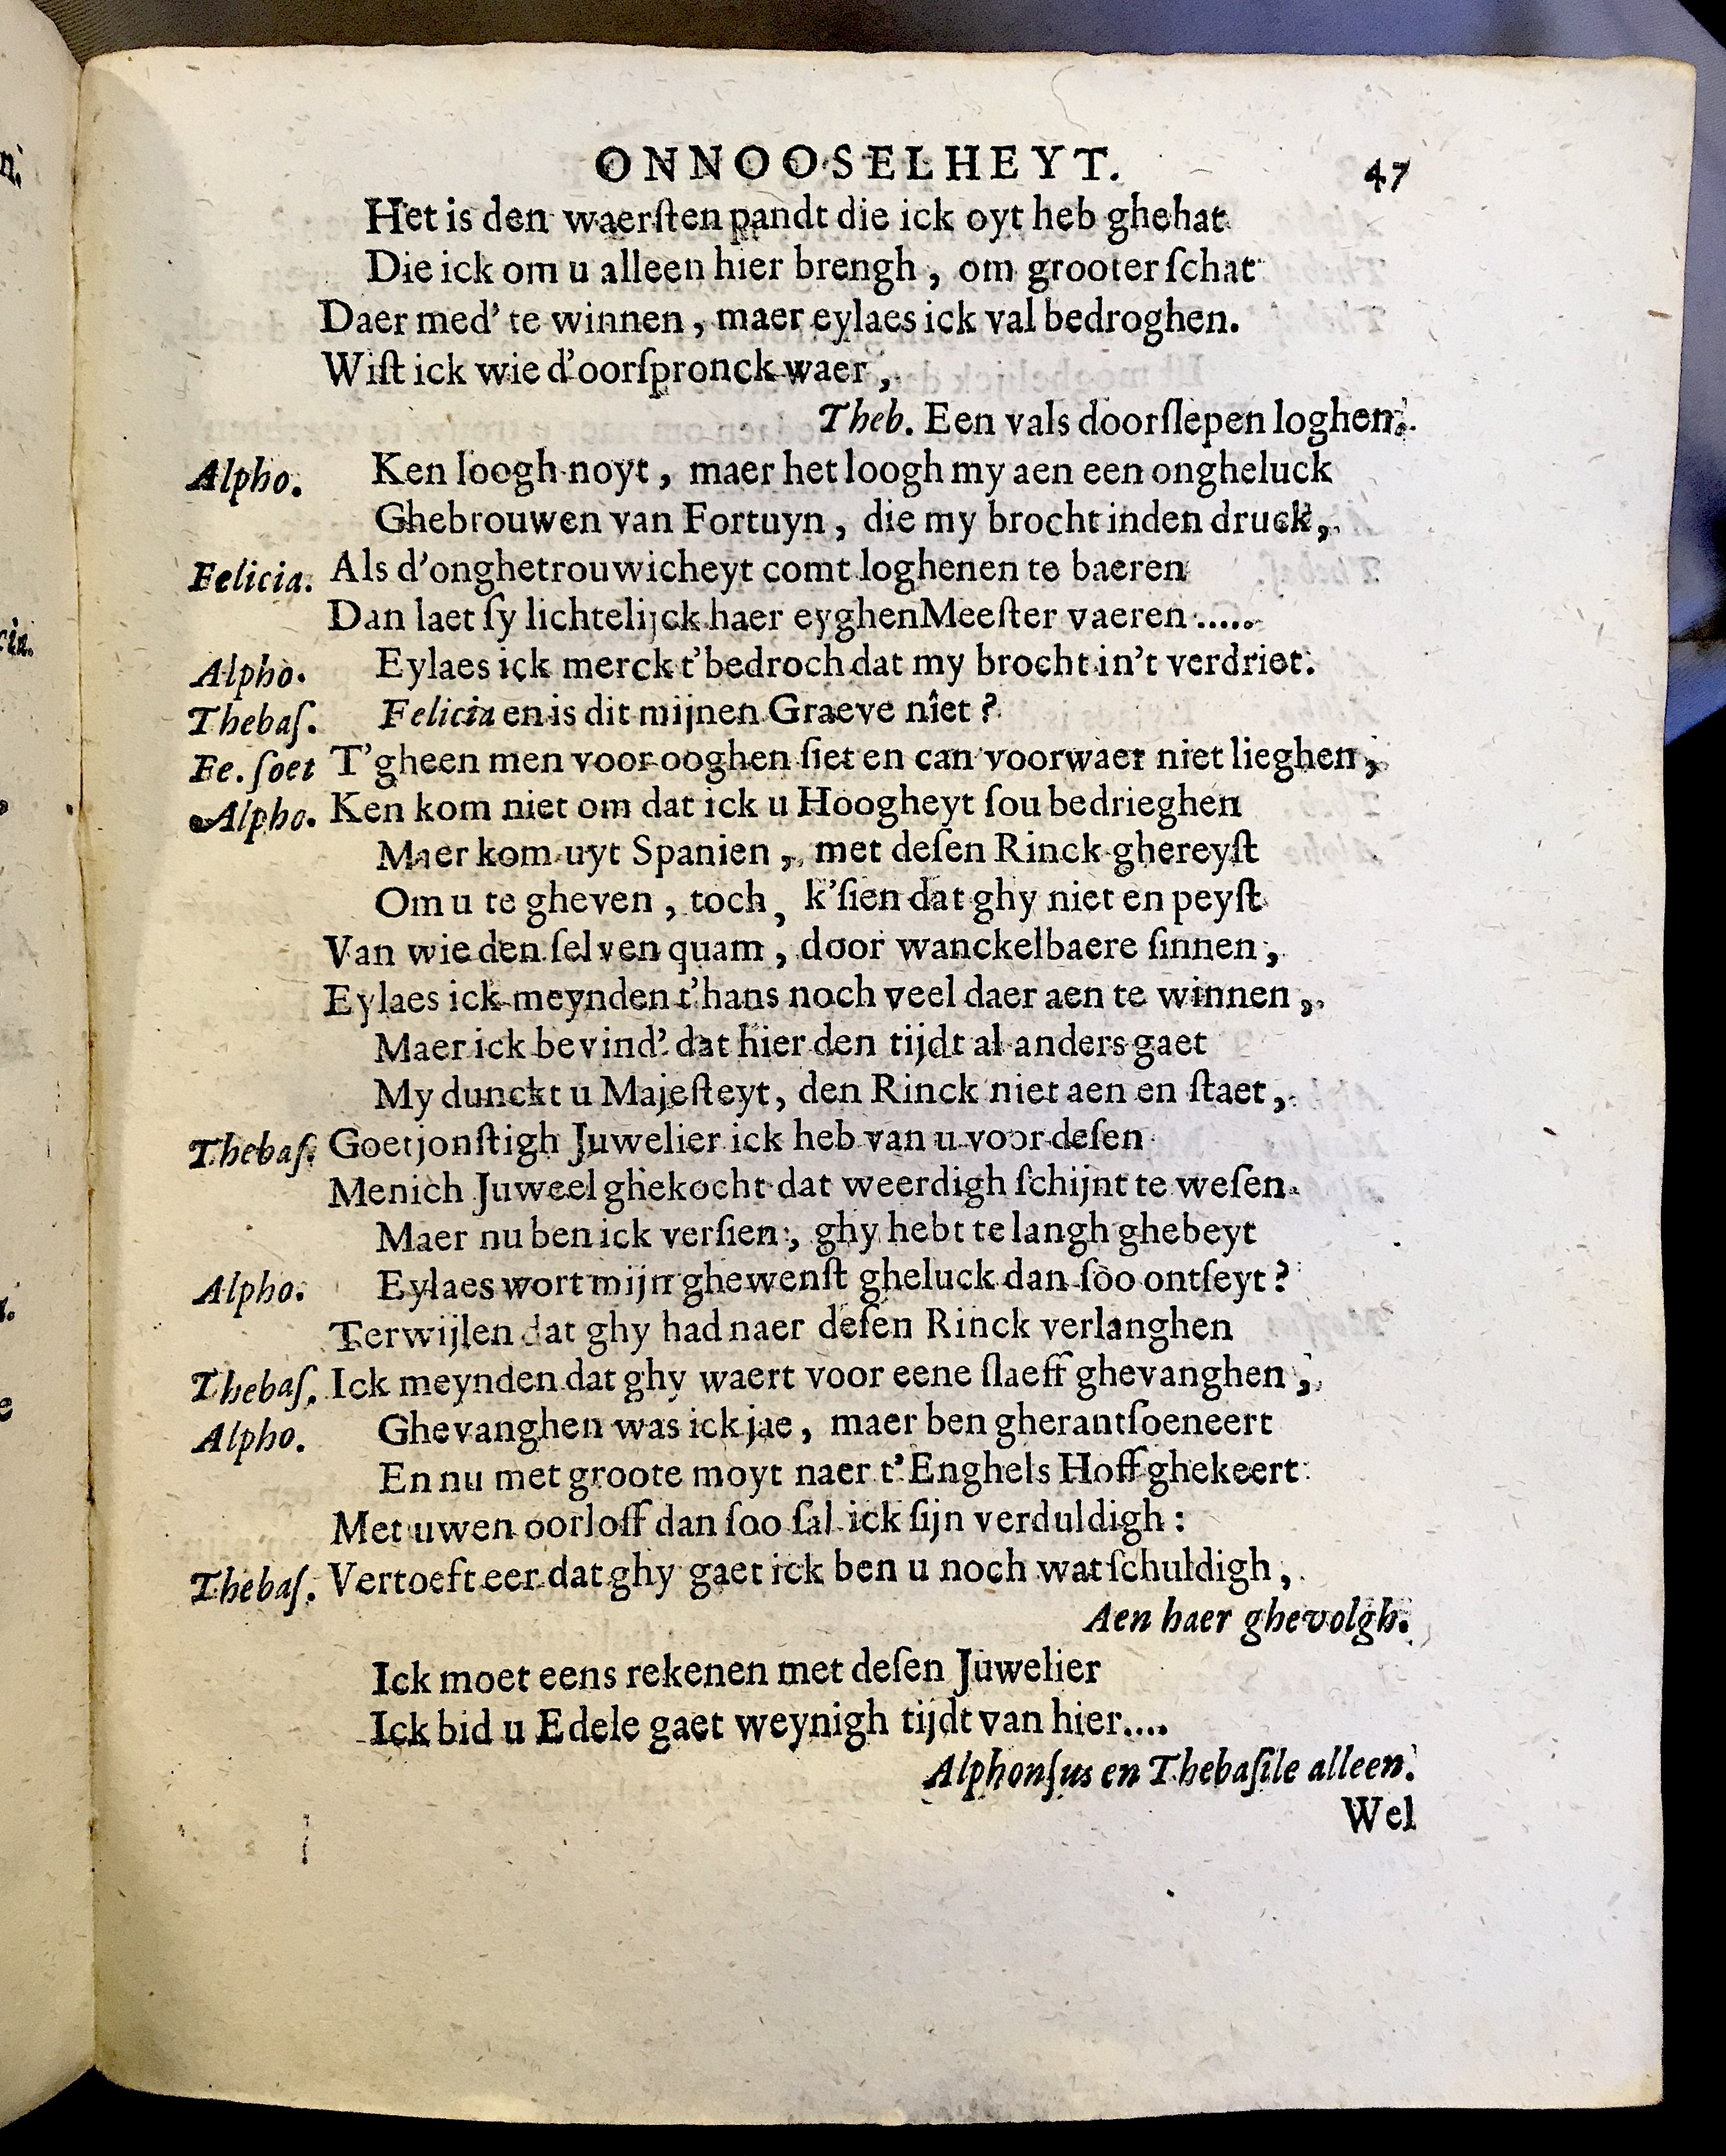 ONNOOSELHEYT. 47
Het is den waerſten pandt die ick oyt heb ghehat
Die ick om u alleen hier brengh, om grooter ſchat
Daer med' te winnen, maer eylaes ick val bedroghen.
Wiſt ick wie d'oorſpronck waer,
Theb. Een vals doorſlepen loghen.
Alpho. Ken loogh noyt, maer het loogh my aen een ongheluck
Ghebrouwen van Fortuyn, die my brocht inden druck,
Felicia. Als d'onghetrouwicheyt comt loghenen te baeren
Dan laet ſy lichtelijck haer eyghen Meeſter vaeren .....
Alpho. Eylaes ick merck t'bedroch dat my brocht in't verdriet.
Thebaſ. Felicia en is dit mijnen Graeve niet?
Fe. ſoet T'gheen men voor ooghen ſiet en can voorwaer niet lieghen,
Alpho. Ken kom niet om dat ick u Hoogheyt ſou bedrieghen
Maer kom uyt Spanien, met deſen Rinck ghereyſt
Om u te gheven, toch, k'ſien dat ghy niet en peyſt
Van wie den ſelven quam, door wanckelbaere ſinnen,
Eylaes ick meynden t'hans noch veel daer aen te winnen,
Maer ick bevind' dat hier den tijdt al anders gaet
My dunckt u Majeſteyt, den Rinck niet aen en ſtaet,
Thebaſ. Goetjonſtigh Juwelier ick heb van u voor deſen
Menich Juweel ghekocht dat weerdigh ſchijnt te weſen.
Maer nu ben ick verſien, ghy hebt te langh ghebeyt
Alpho. Eylaes wort mijn ghewenſt gheluck dan ſoo ontſeyt?
Terwijlen dat ghy had naer deſen Rinck verlanghen
Thebaſ. Ick meynden dat ghy waert voor eene ſlaeff ghevanghen,
Alpho. Ghevanghen was ick jae, maer ben gherantſoeneert
En nu met groote moyt naer t'Enghels Hoff ghekeert
Met uwen oorloff dan ſoo ſal ick ſijn verduldigh:
Thebaſ. Vertoeft eer dat ghy gaet ick ben u noch wat ſchuldigh,
Aen haer ghevolgh.
Ick moet eens rekenen met deſen Juwelier
Ick bid u Edele gaet weynigh tijdt van hier....
Alphonſus en Thebaſile alleen.
Wel